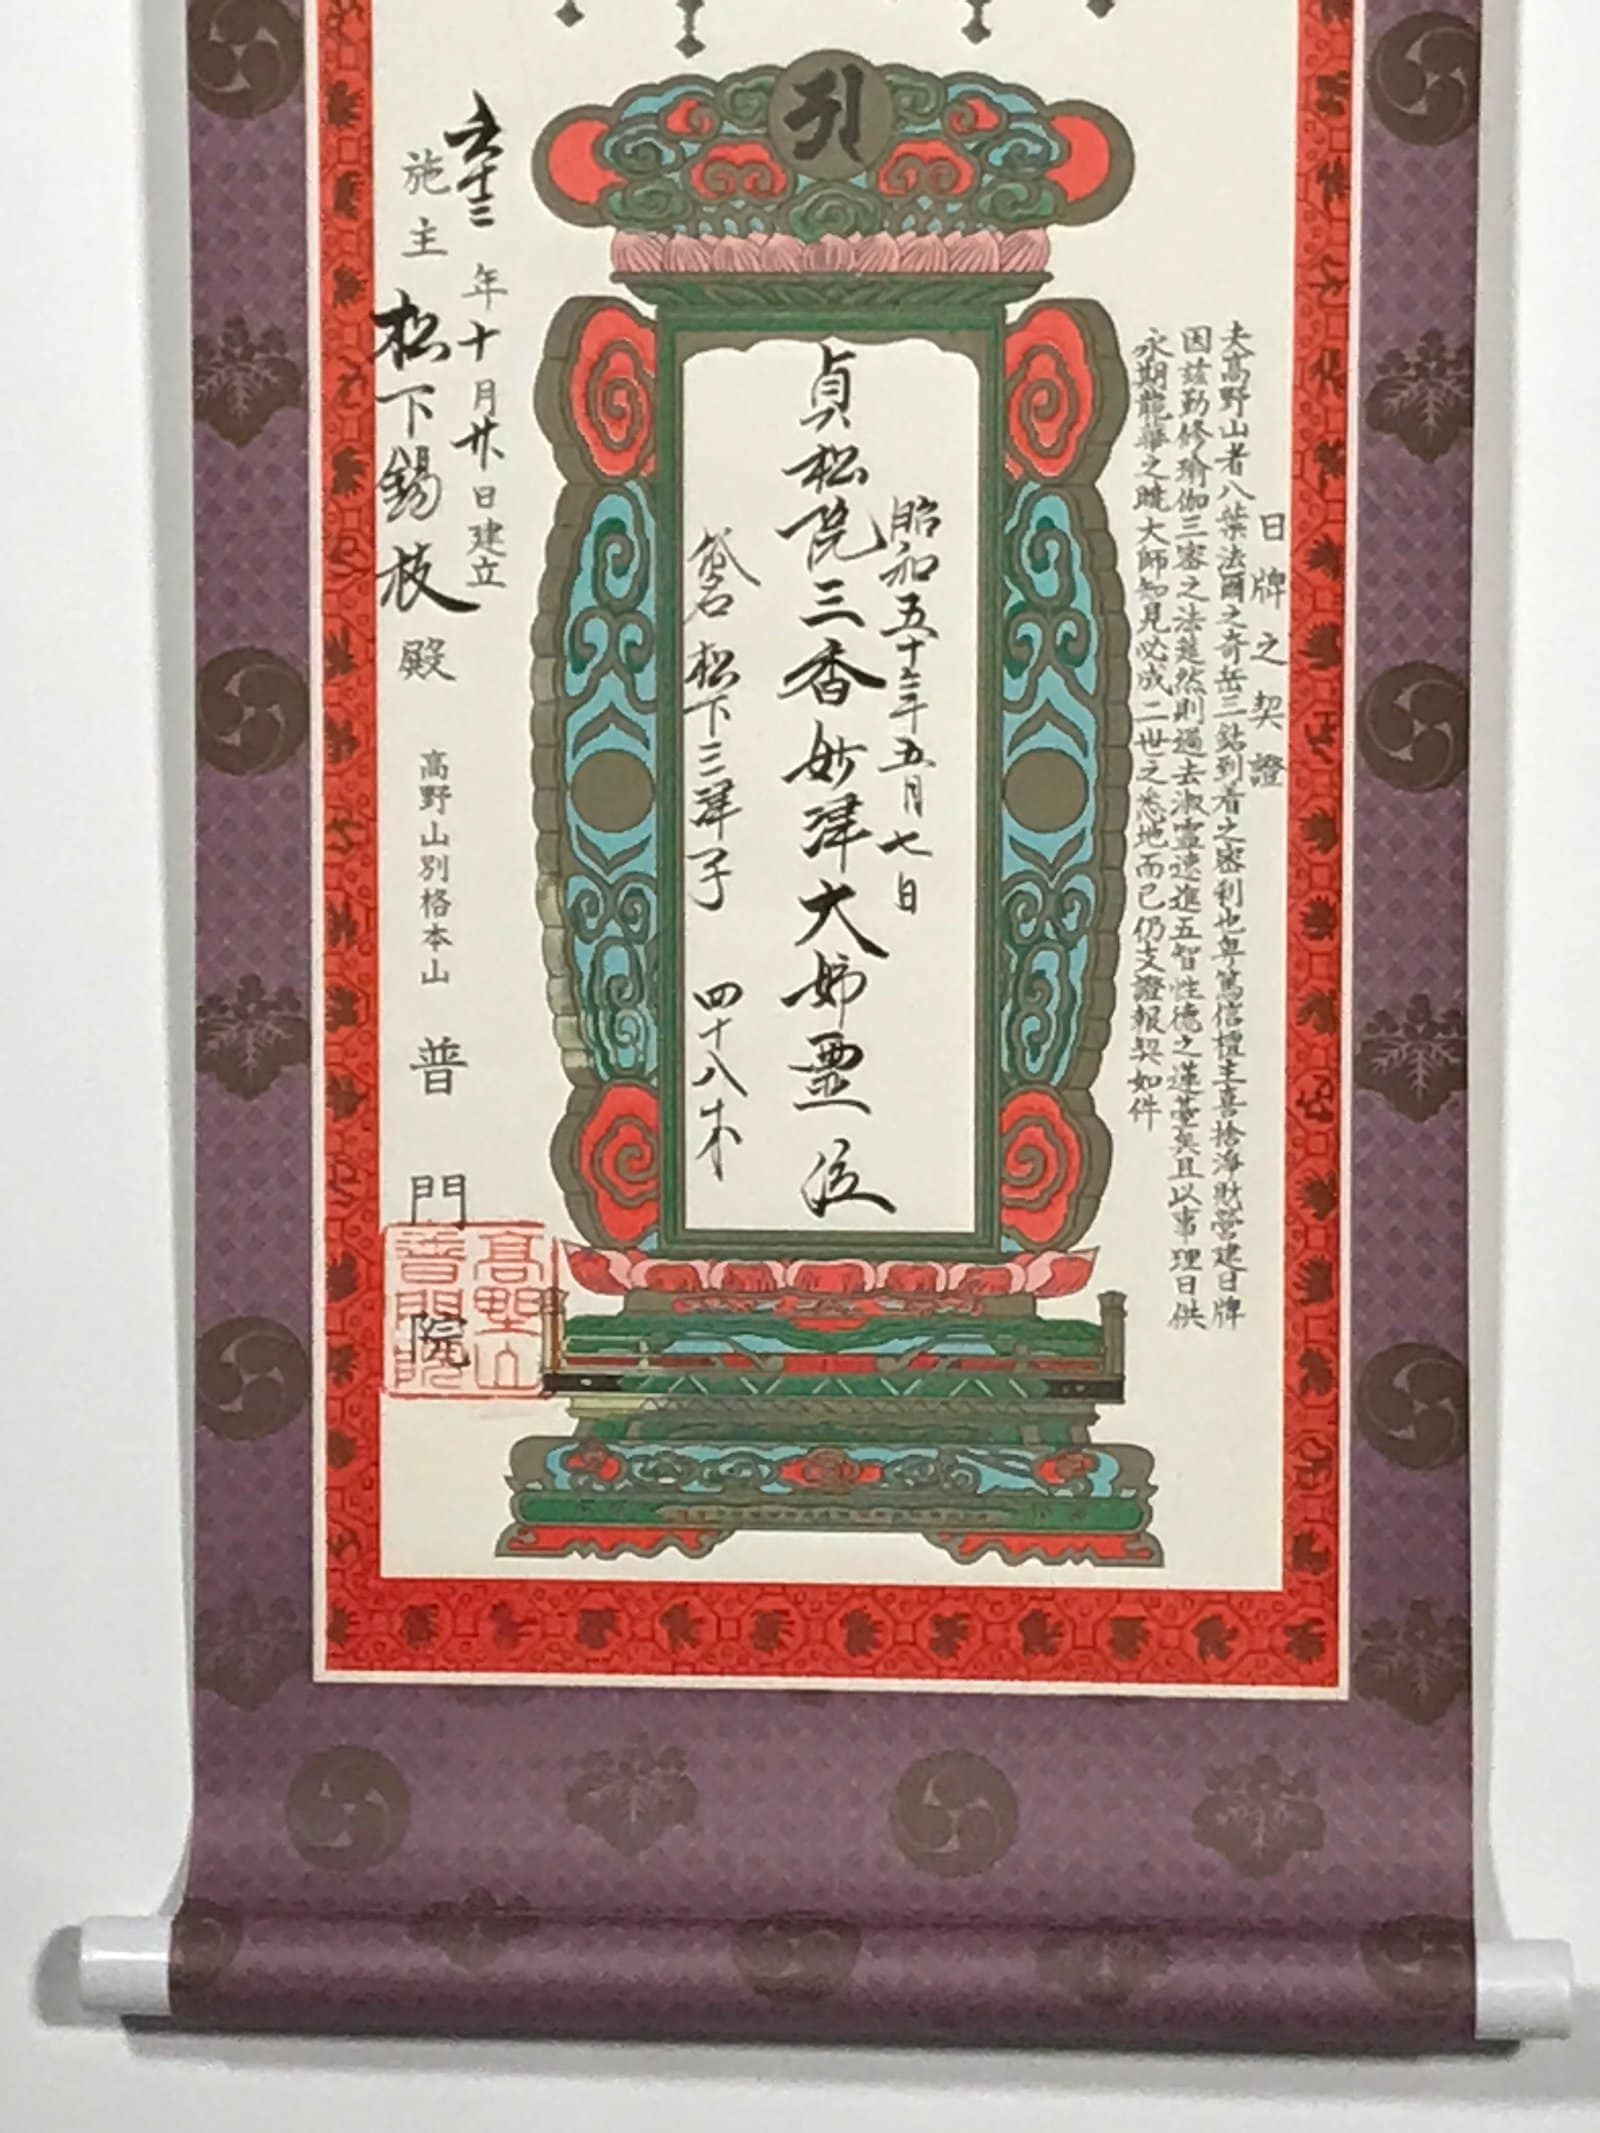 日牌之契證
夫高野山者八葉法爾之奇岳三鈷到着之密利也粤篤信檀主喜捨淨財營建日牌
因茲勤修瑜伽三密之法莚然則過去淑霊速進五智性德之蓮臺矣且以事理日供
永期龍華之暁大師知見必成二世之悉地而已仍支證報契如件
昭和五十三年五月七日
貞松院三香妙津大姉霊位
俗名 松下三津子 四十八才
五十三年十月廿日建立
施主 松下錫枝殿
高野山別格本山 普門院
高野山
普門院